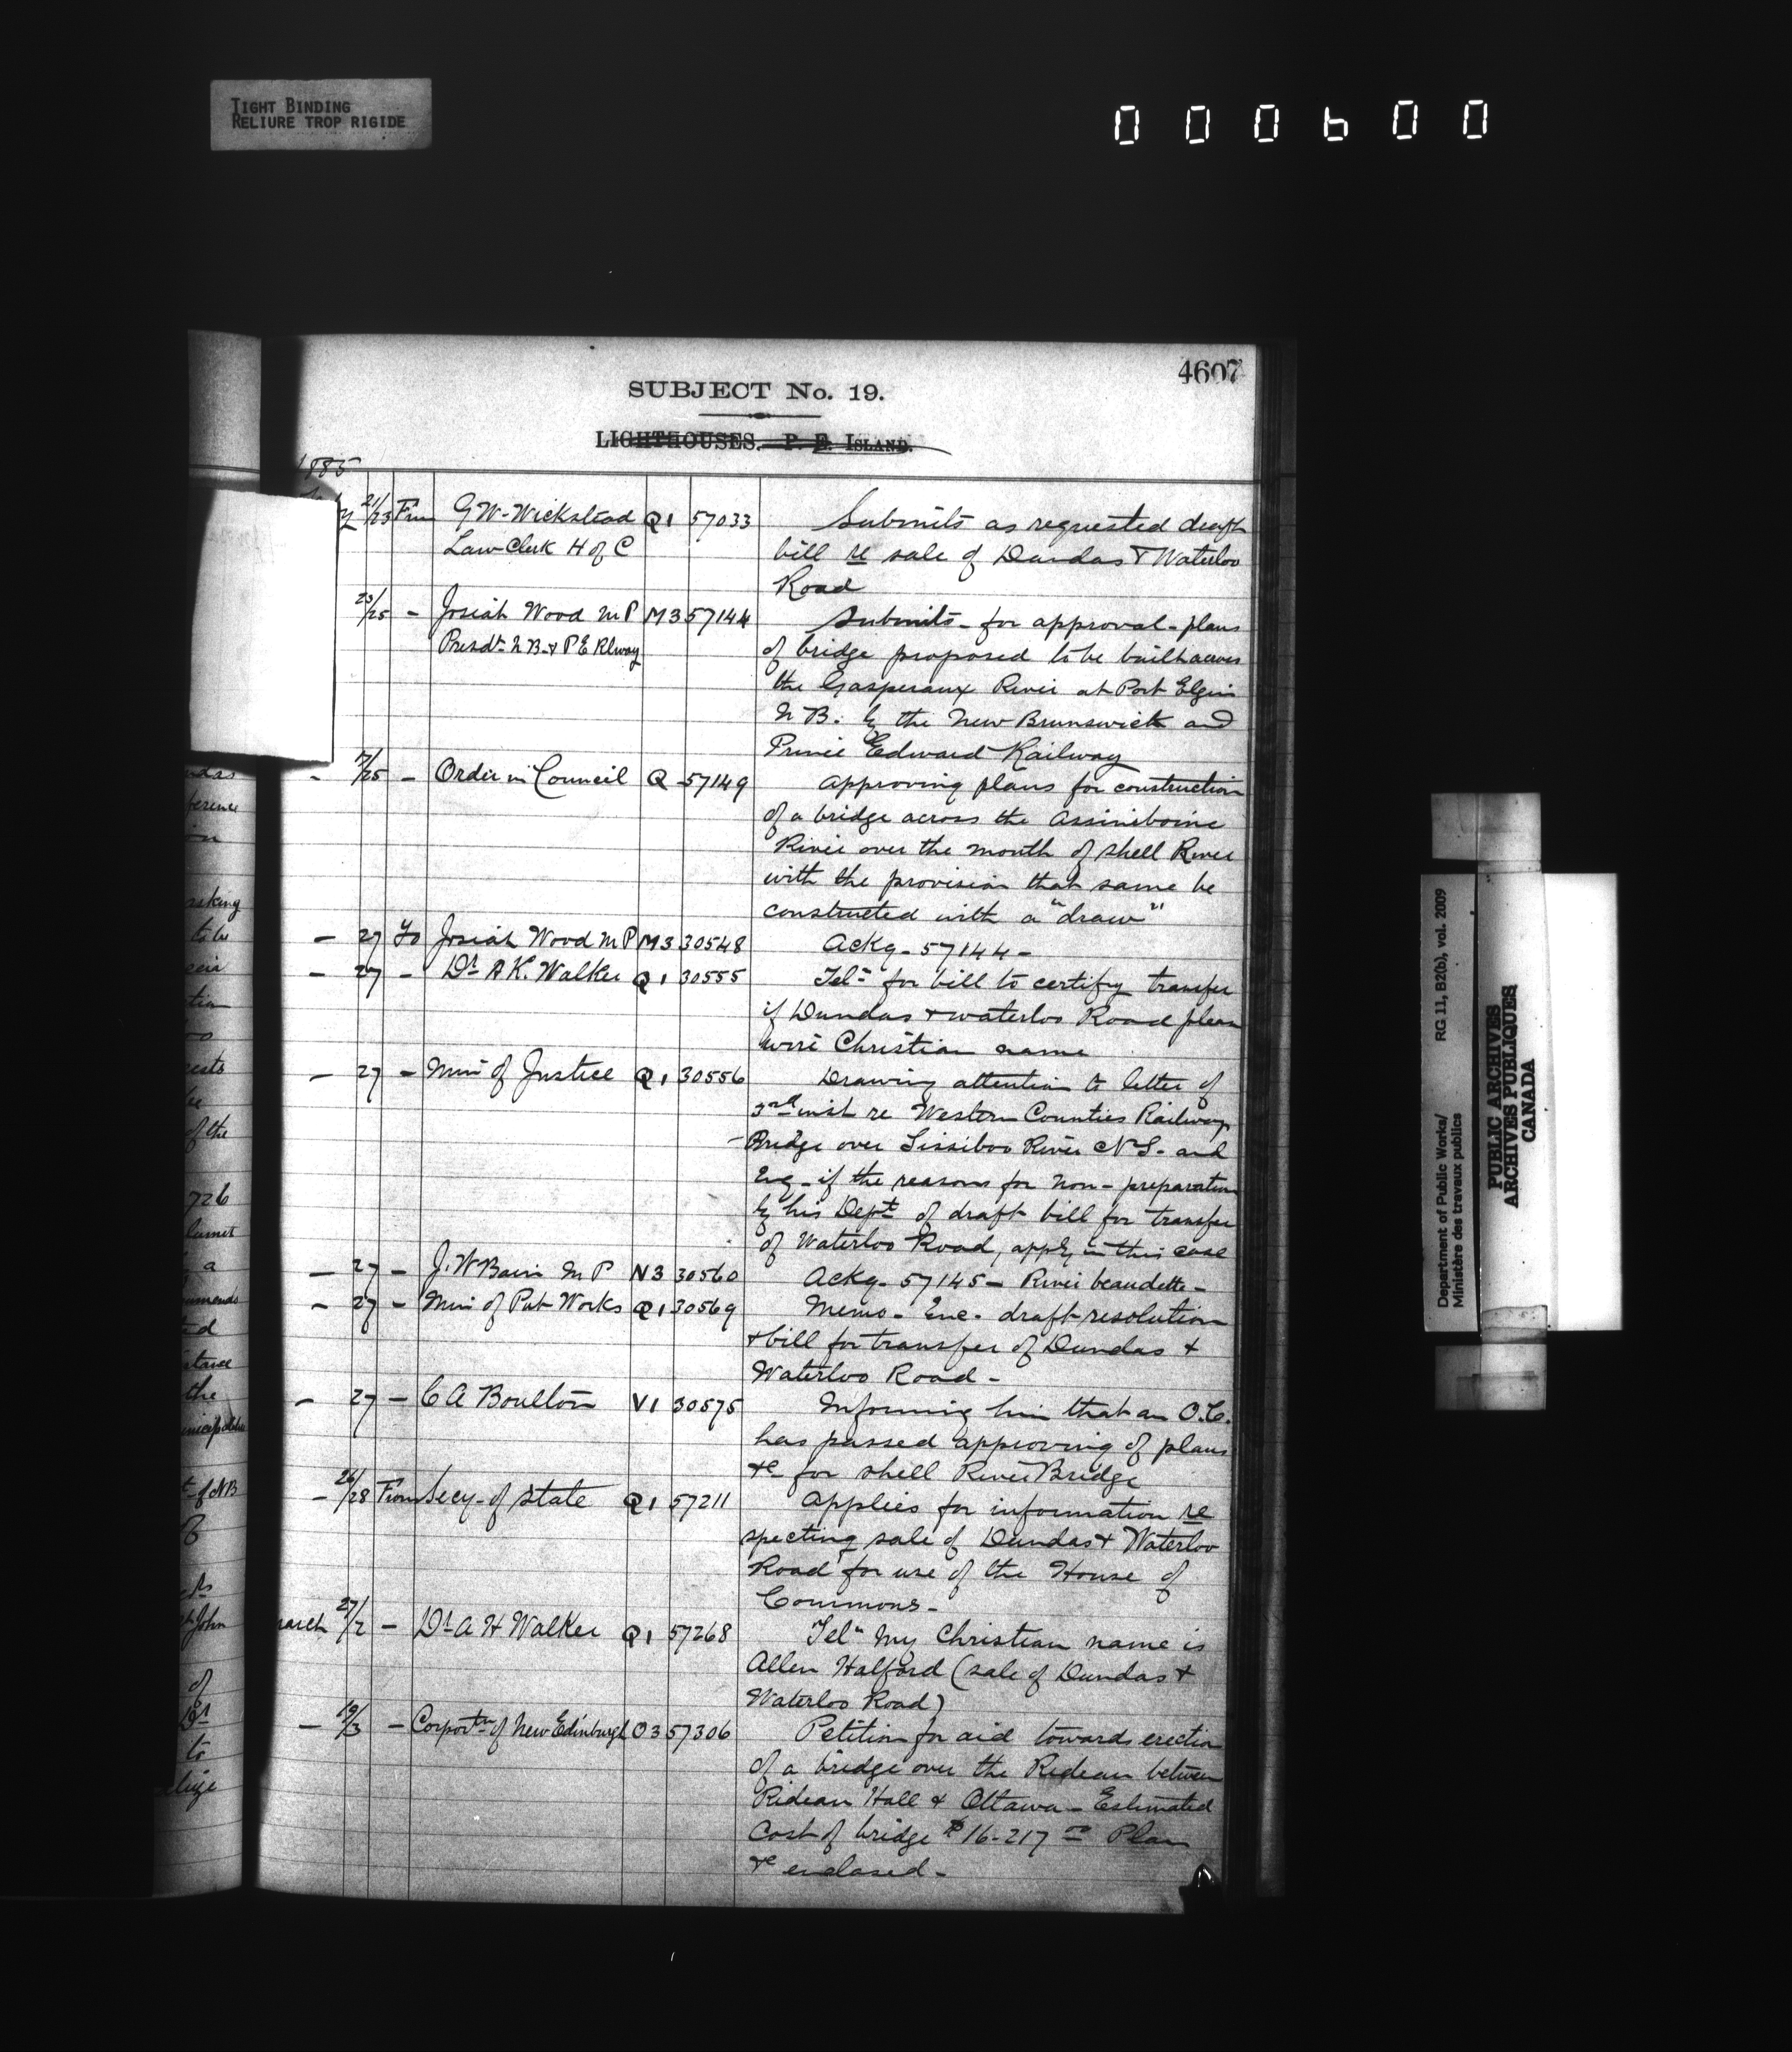 TIGHT BINDING
RELIURE TROP RIGIDE
000600
4607
SUBJECT No. 19.
LIGHTHOUSES. P. E. ISLAND.
1885
21/23 From G W Wickstead Q1 57033 Submits as requested draft
Law Clerk H of C bill re sale of Dundas & Waterloo
Road
23/25 - Josiah Wood M P M3 57144 Submits - for approval - plans
Presdt N B & P E Rlway of bridge proposed to be built across
the Gasperaux River at Port Elgin
N B. by the New Brunswick and
Prince Edward Railway
- 17/25 - Order in Council Q 57149 approving plans for construction
of a bridge across the Assiniboine
River over the mouth of Shell River
with the provision that same be
constructed with a "draw"
- 27 To Josiah Wood M P M3 30548 Ackg - 57144 -
- 27 - Dr A K. Walker Q1 30555 Teln for bill to certify transfer
if Dundas & Waterloo Road please
wire Christian name
- 27 - Min of Justice Q1 30556 Drawing attention to letter of
3rd inst re Western Counties Railway
Bridge over Sissiboo River N S. and
Enq - if the reasons for non-preparation
by his Dept of draft bill for transfer
of Waterloo Road, apply in this case
- 27 - J. W Bain M P N3 30560 Ackg - 57145 - River beaudette -
- 27 - Min of Pub Works Q1 30569 Memo - Enc. draft resolution
& bill for transfer of Dundas &
Waterloo Road -
- 27 - C A Boulton V1 30575 Informing him that an O.C.
has passed approving of plans
&c for Shell River Bridge
- 26/28 From Secy - of State Q1 57211 applies for information re
specting sale of Dundas & Waterloo
Road for use of the House of
Commons -
march 27/2 - Dr A H Walker Q1 57268 Teln My Christian name is
Allen Halford (sale of Dundas &
Waterloo Road)
- 19/3 - Corportn of New Edinburgh O3 57306 Petition for aid towards erection
of a bridge over the Rideau between
Rideau Hall & Ottawa - Estimated
Cost of bridge $16-217 00 Plan
&c enclosed -
Department of Public Works/ RG 11, B2(b), vol. 2009
Ministère des travaux publics
PUBLIC ARCHIVES
ARCHIVES PUBLIQUES
CANADA